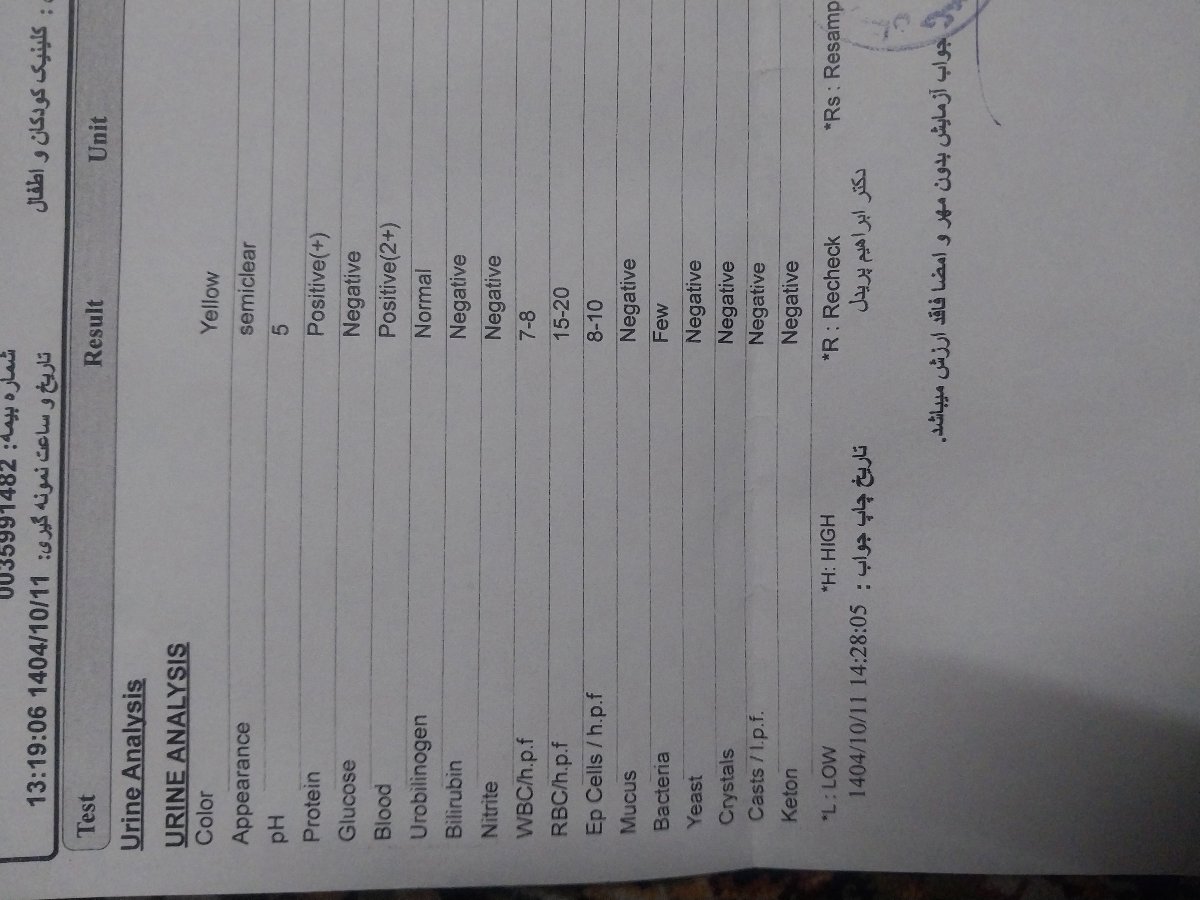 شماره بیمه: 0035991482
: کلینیک کودکان و اطفال
تاریخ و ساعت نمونه گیری: 13:19:06 1404/10/11
Test Result Unit
Urine Analysis
URINE ANALYSIS
Color Yellow
Appearance semiclear
pH 5
Protein Positive(+)
Glucose Negative
Blood Positive(2+)
Urobilinogen Normal
Bilirubin Negative
Nitrite Negative
WBC/h.p.f 7-8
RBC/h.p.f 15-20
Ep Cells / h.p.f 8-10
Mucus Negative
Bacteria Few
Yeast Negative
Crystals Negative
Casts / l.p.f. Negative
Keton Negative
*L : LOW *H: HIGH *R : Recheck *Rs : Resamp
تاریخ چاپ جواب : 1404/10/11 14:28:05 دکتر ابراهیم پریدل
جواب آزمایش بدون مهر و امضا فاقد ارزش میباشد.